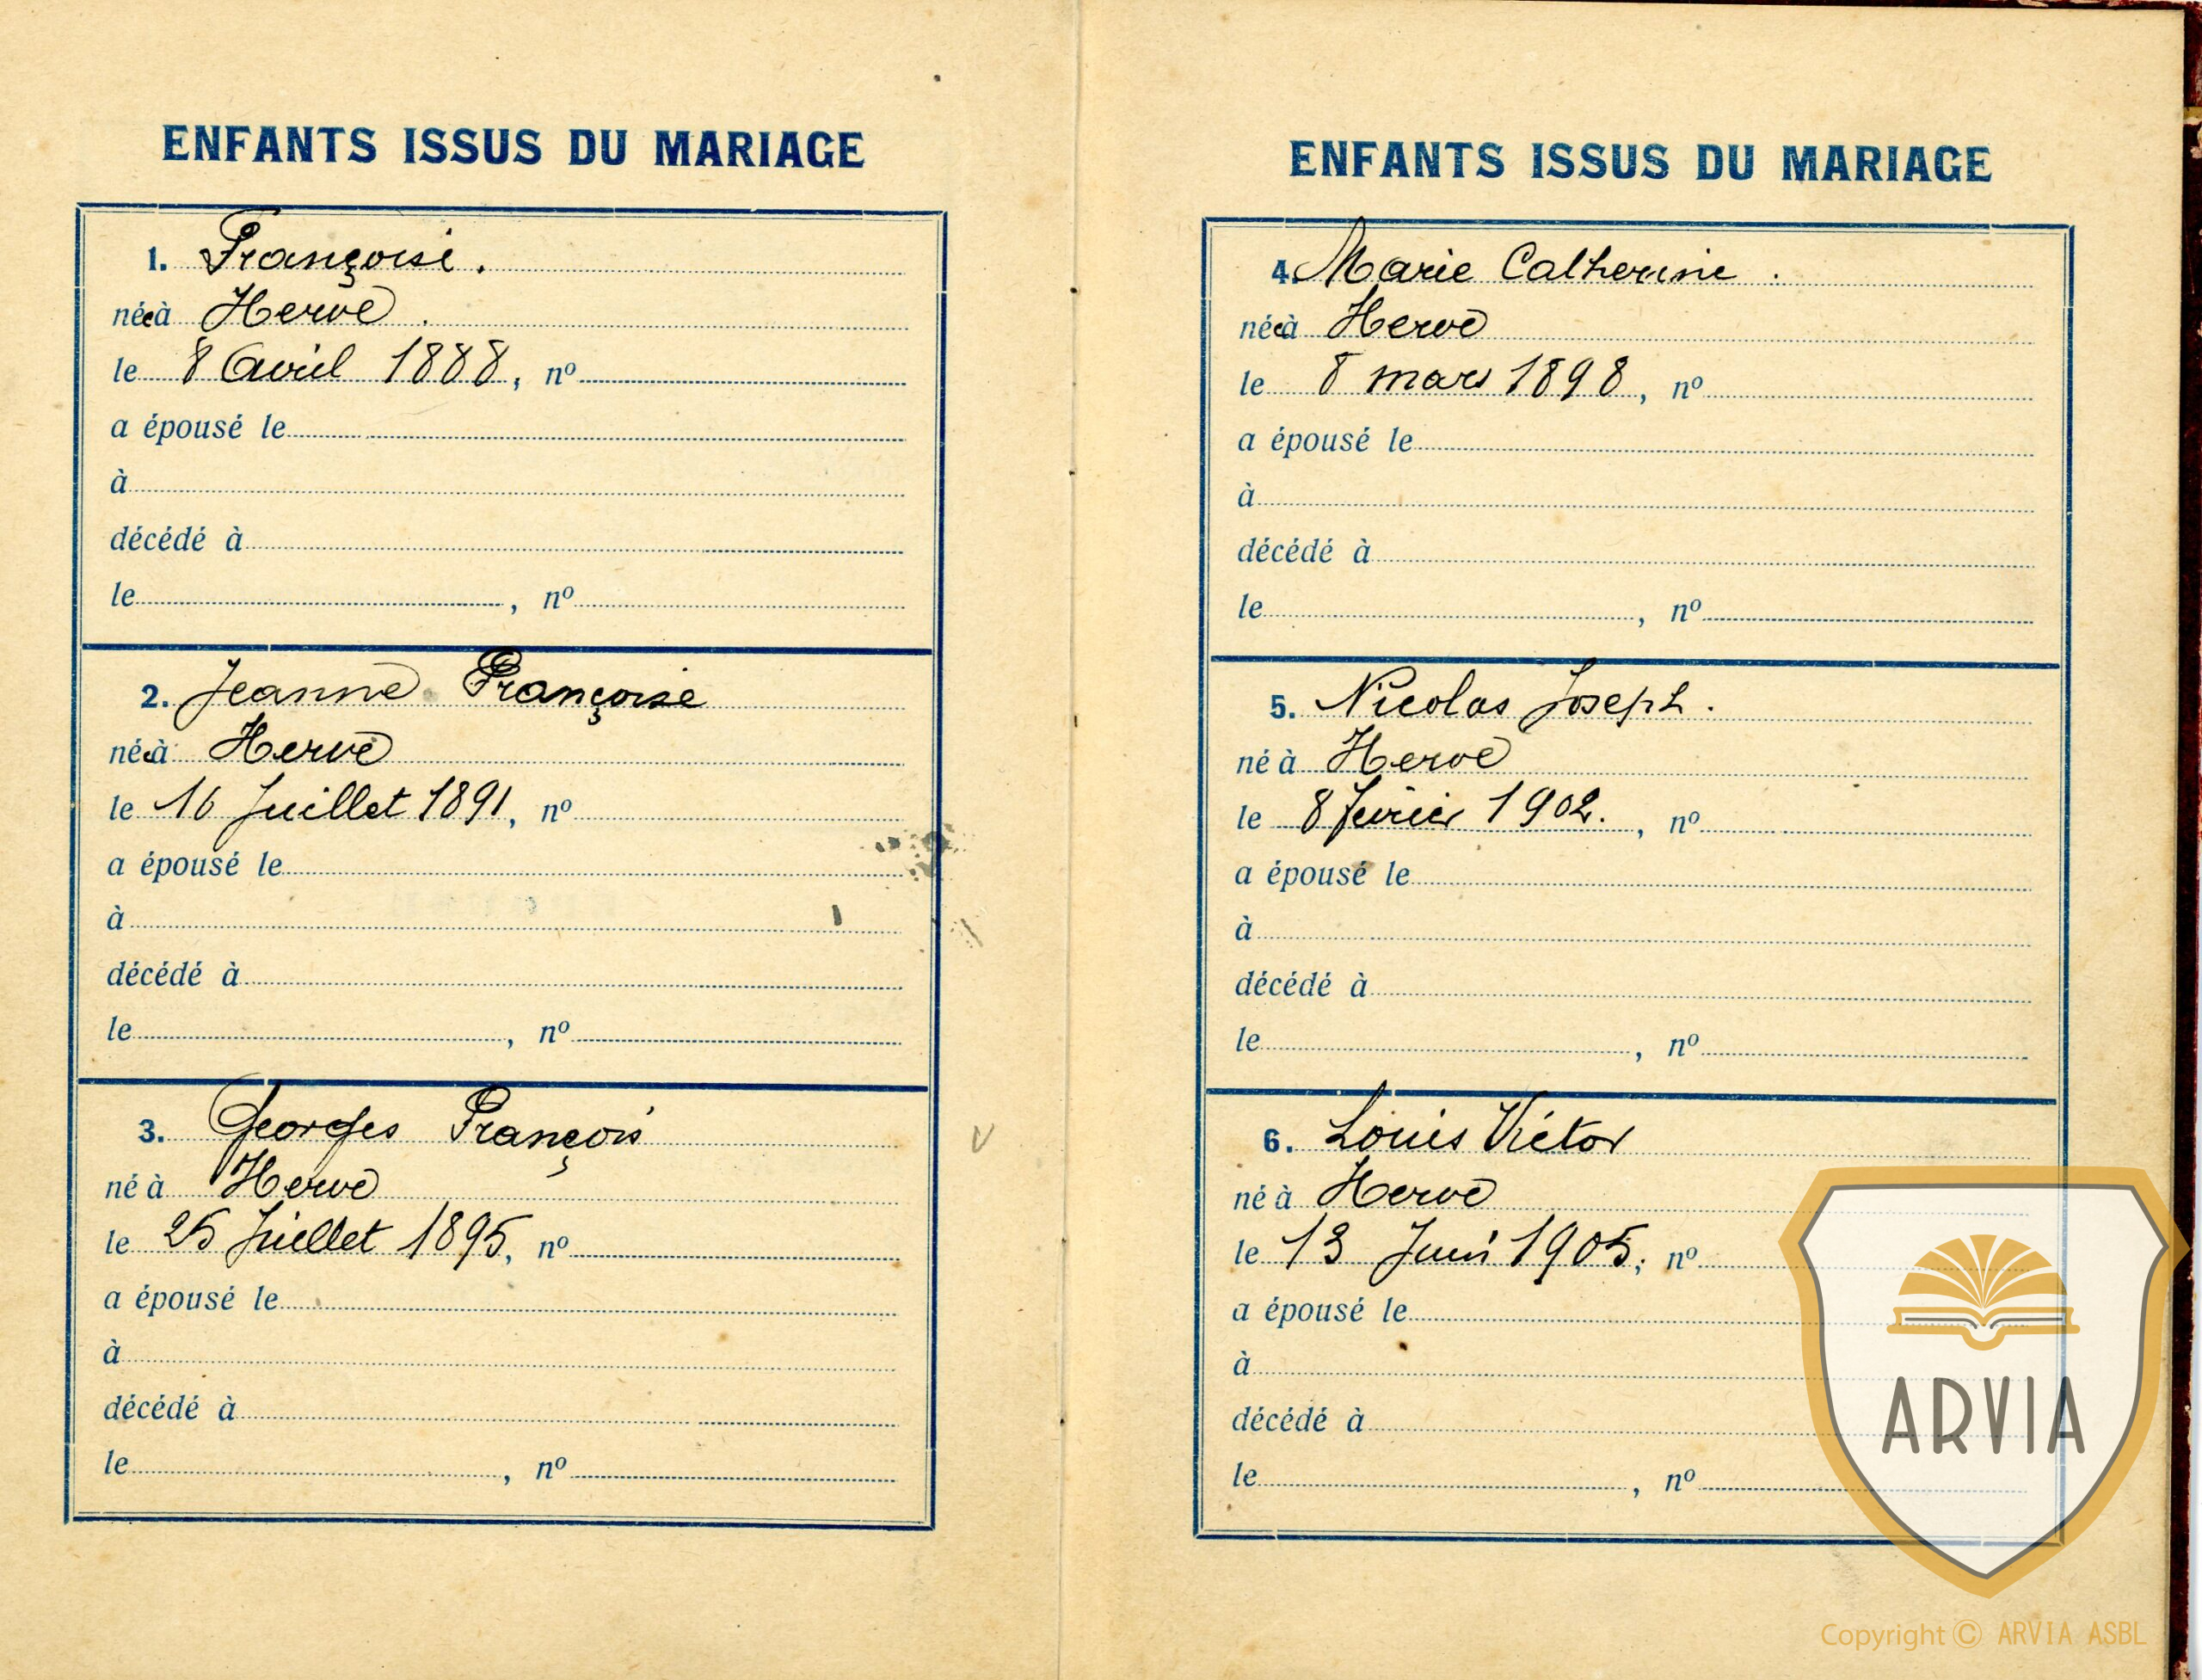 ENFANTS ISSUS DU MARIAGE
1. Françoise.
née à Herve.
le 8 Avril 1888, nº
a épousé le
à
décédé à
le , nº
2. Jeanne Françoise
née à Herve
le 16 Juillet 1891, nº
a épousé le
à
décédé à
le , nº
3. Georges François
né à Herve
le 25 Juillet 1895, nº
a épousé le
à
décédé à
le , nº
ENFANTS ISSUS DU MARIAGE
4. Marie Catherine.
née à Herve
le 8 mars 1898, nº
a épousé le
à
décédé à
le , nº
5. Nicolas Joseph.
né à Herve
le 8 février 1902., nº
a épousé le
à
décédé à
le , nº
6. Louis Victor
né à Herve
le 13 Juin 1905, nº
a épousé le
à
décédé à
le , nº
ARVIA
Copyright © ARVIA ASBL